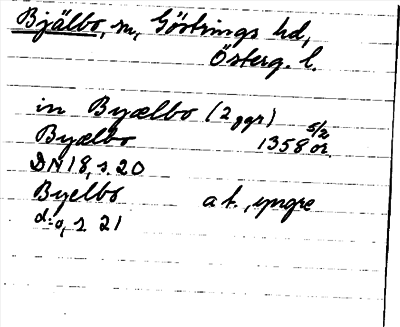 Bjälbo, sn, Göstrings hd,
Österg. l.
in Byælbo (2 ggr)
Byælbo 1358 5/2 or.
DN 18, s. 20
Byelbo a t., yngre
d:o, s. 21